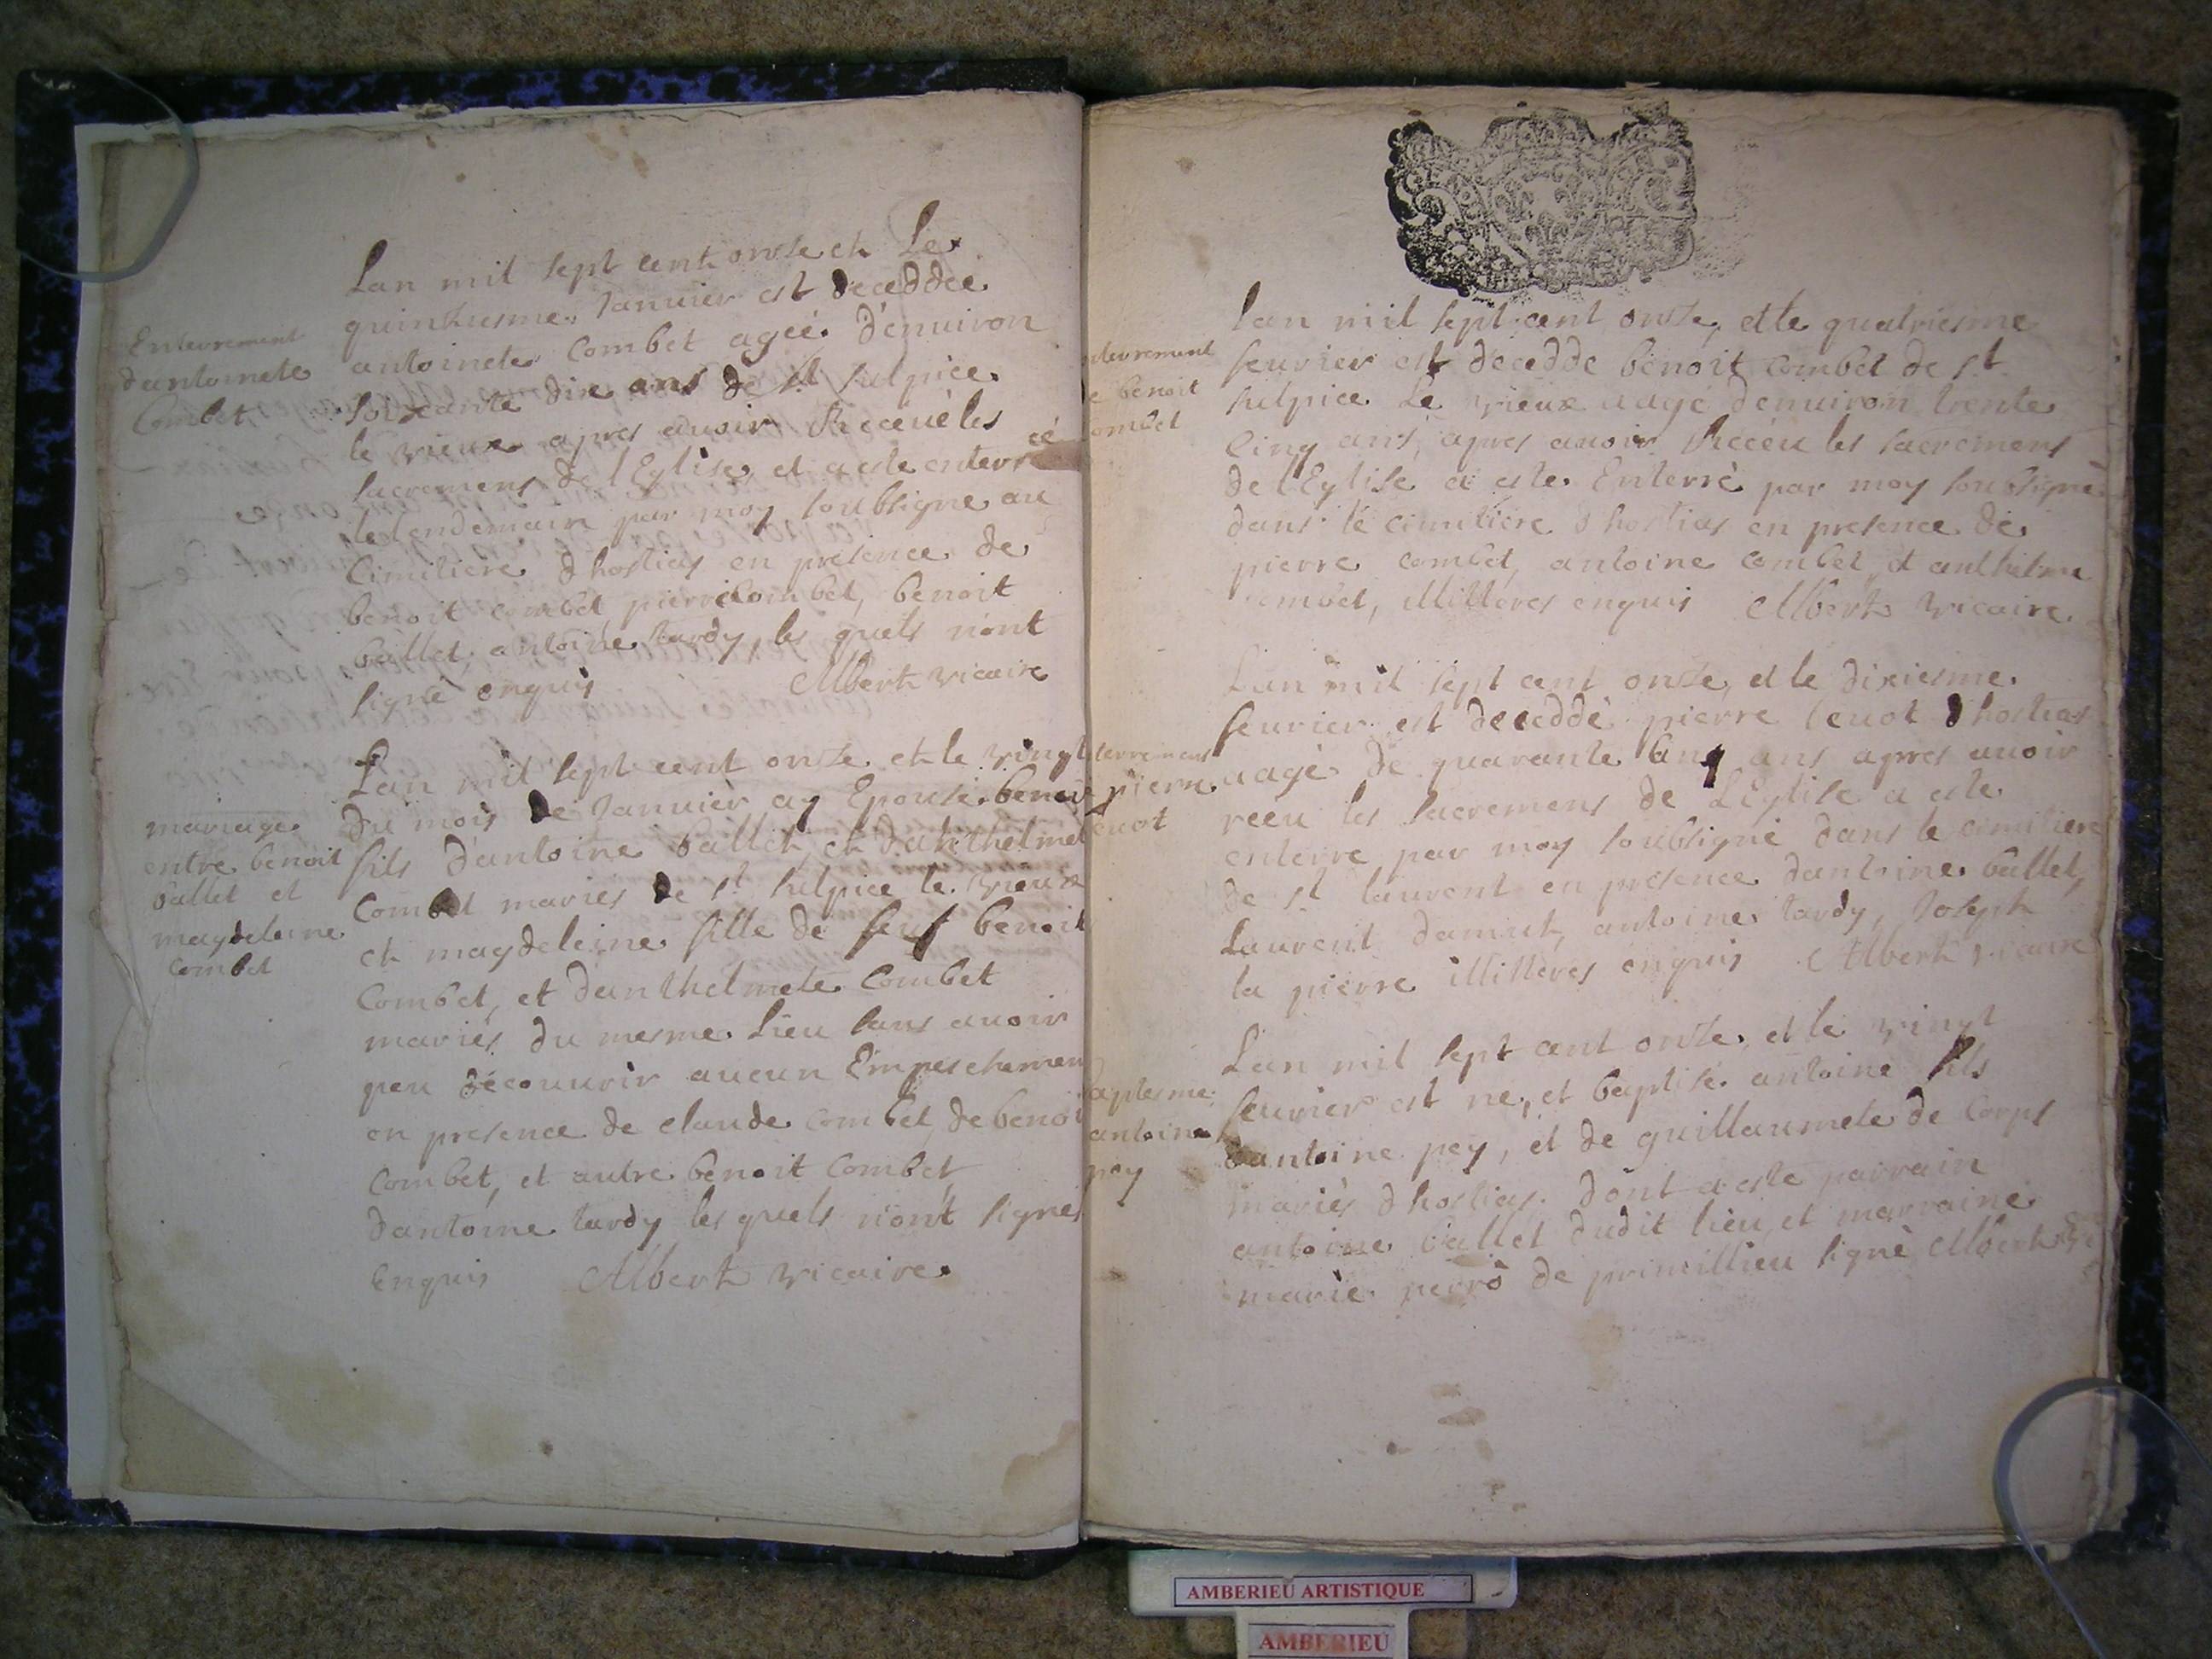 Enterrement
dantoinete
Combet
Lan mil sept cent onse et Le
quinsiesme Januier est deceddee
antoinete Combet ageé denuiron
soixante dix ans de st sulpice
le vieux apres auoir Receüe les
sacremens de lEglise, et a este enterré
le lendemain par moy soubsigne au
Cimitiere dhostias en presence de
benoit combet pierre Combet, benoit
ballet, antoine tardy, les quels niont
signé enquis Albert vicaire
mariage
entre benoit
ballet et
magdeleine
combet
Lan mil sept cent onse et le vingt
du mois de Januier ay Epousé benoit
fils dantoine ballet et danthelmet
Combet mariés de st sulpice le vieux
et magdeleine fille de feuf benoit
Combet, et danthelmete Combet
mariés du mesme Lieu sans auoir
peu decouurir aucun Empeschemen
en presence de claude combet, de benoit
Combet, et autre benoit Combet
dantoine tardy les quels niont signes
Enquis Albert vicaire
nterrement
e benoit
ombet
lan mil sept cent onse, et le quatriesme
feurier est decedde benoit combet de st
sulpice Le vieux aagé denuiron trente
Cinq ans, apres auoir Receu les sacremens
de lEglise a este Enterré par moy soubsigné
dans le cimitiere dhostias en presence de
pierre combet, antoine combet et anthelme
ombet, illiteres enquis Albert vicaire
terrement
pierre
euot
Lan mil sept cent onse, et le dixiesme
feurier est deceddé pierre leuot dhostias
aagé de quarante cinq ans apres auoir
receu les sacremens de LEglise a este
enterre par moy soubsigné dans le cimitiere
de st laurent en presence dantoine ballet,
Laurent damut, antoine tardy, Joseph
la pierre illiteres enquis Albert vicaire
aptesme
antoine
pey
Lan mil sept cent onse, et le vingt
feurier est ne, et baptisé antoine fils
dantoine pey, et de guillaumete de Corps
mariés dhostias. dont a este parrain
antoine ballet dudit lieu, et marraine
marie perro de primillieu signé Albert
AMBERIEU ARTISTIQUE
AMBERIEU